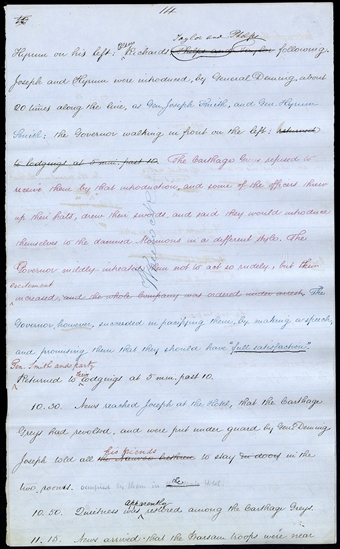 14
Taylor and Phelps
Hyrum on his left: Drs Richards Phelps and Taylor following.
Joseph and Hyrum were introduced, by General Deming, about
20 times along the line, as Gen. Joseph Smith, and Gen. Hyrum
Smith: the Governor walking in front on the left: returned
to lodgings at 5 min. past 10. The Carthage Greys refused to
receive them by that introduction, and some of the officers threw
up their hats, drew their swords, and said they would introduce
themselves to the damned Mormons in a different style. The
Governor mildly intreated them not to act so rudely, but their
excitement
increased, and the whole Company was ordered under arrest. The
Governor, however, succeeded in pacifying them, by making a speech,
and promising them that they should have "full satisfaction."
Gen. Smith and party
Returned to their lodgings at 5 min. past 10.
10.30. News reached Joseph at the Hotel, that the Carthage
Greys had revolted, and were put under guard by Gen. Deming.
his friends
Joseph told all to stay in doors in the
two rooms. occupied by them in the
apparently
10.50. Quietness was restored among the Carthage Greys.
11.15. News arrived that the Warsaw troops were near